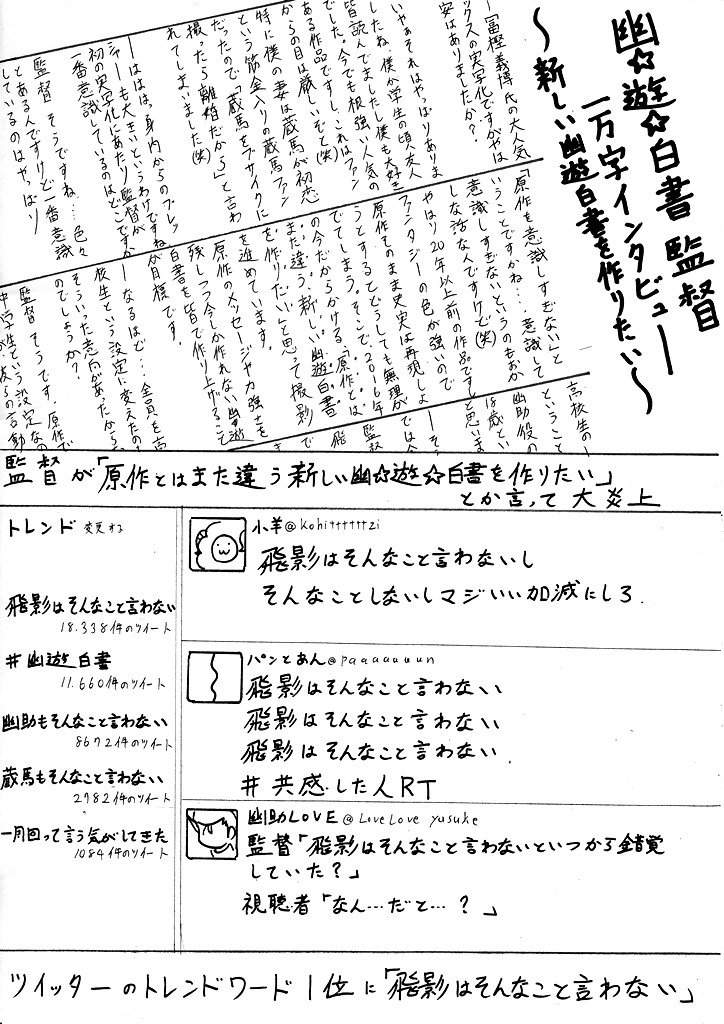 幽☆遊☆白書 監督
一万字インタビュー
～新しい幽遊白書を作りたい～
―冨樫義博氏の大人気
ックスの実写化ですがやは
安はありましたか？
いやぁそれはやっぱりありま
したね。僕が学生の頃、友人
皆読んでましたし僕も大好き
でした。今でも根強い人気の
ある作品ですし、これはファン
からの目は厳しいぞと(笑)
特に僕の妻は蔵馬が初恋
という筋金入りの蔵馬ファン
だったので「蔵馬をブサイクに
撮ったら離婚だから」と言わ
れてしまいました(笑)
―ははは、身内からのプレッ
シャーも大きいというわけですね
初の実写化にあたり監督が
一番意識しているのはどこですか
監督 そうですね…色々
とあるんですけど一番意識
しているのはやっぱり
「原作を意識しすぎないと
いうことですかね…意識して
意識しすぎないというのもおか
しな話なんですけど(笑)
やはり20年以上前の作品ですし
ファンタジーの色が強いので
原作をそのまま忠実に再現しよ
うとするとどうしても無理が
でてしまう。そこで、2016年
の今だからかける、「原作とは
また違う、新しい幽遊白書
を作りたい」と思って撮影
を進めています。
原作のメッセージや力強さを
残しつつ今しか作れない幽遊
白書を皆で作り上げること
が目標です。
―なるほど…全員を高
校生という設定に変えたのも
そういった意向があったから
のでしょうか？
監督 そうです。原作で
中学生という設定なの
高校生の
ということ
幽助役の
18歳とい
と思いま
監督が「原作とはまた違う新しい幽☆遊☆白書を作りたい」
とか言って大炎上
トレンド 変更する
飛影はそんなこと言わない
18.338件のツイート
#幽遊白書
11.660件のツイート
幽助もそんなこと言わない
8672件のツイート
蔵馬もそんなこと言わない
2782件のツイート
一周回って言う気がしてきた
1084件のツイート
小羊@kohittttttzi
飛影はそんなこと言わないし
そんなことしないしマジいい加減にしろ.
パンとあん@paaaauuun
飛影はそんなこと言わない
飛影はそんなこと言わない
飛影はそんなこと言わない
#共感した人RT
幽助LOVE @LoveLove yusuke
監督「飛影はそんなこと言わないといつから錯覚
していた？」
視聴者「なん…だと…？」
ツイッターのトレンドワード1位に「飛影はそんなこと言わない」